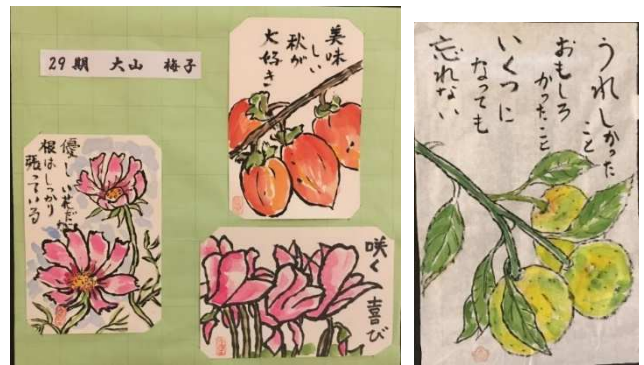 29期 大山 梅子
美味
しい
秋が
大好き
優しい花だが
根はしっかり
張っている
咲く喜び
うれしかった
こと
おもしろ
かったこと
いくつに
なっても
忘れない